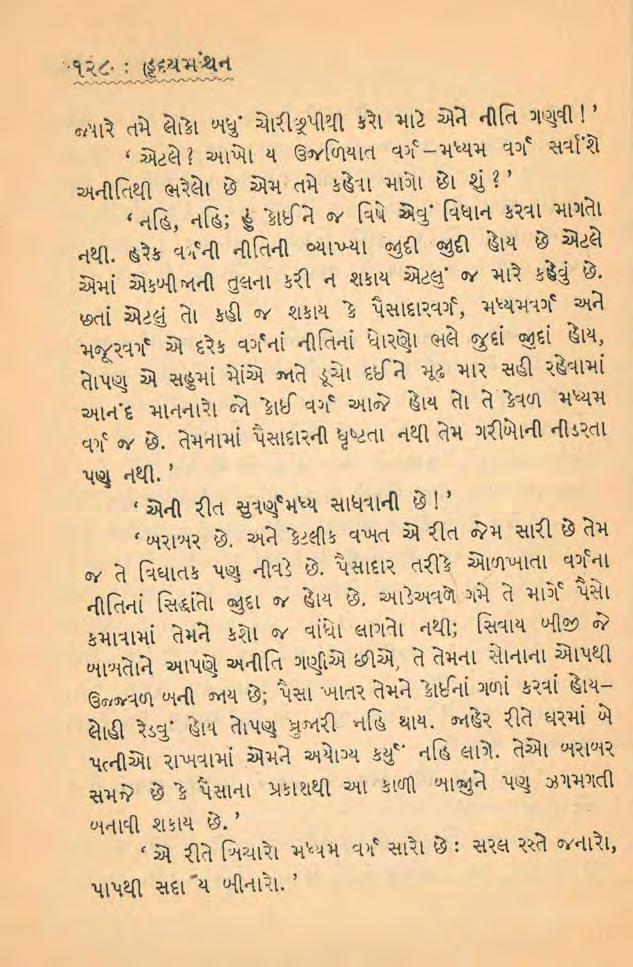 ૧૨૮ : હૃદયમંથન
જ્યારે તમે લોકો બધું ચોરીછૂપીથી કરો માટે એને નીતિ ગણવી !’
‘ એટલે ? આખો ય ઉજળિયાત વર્ગ – મધ્યમ વર્ગ સર્વાંશે
અનીતિથી ભરેલો છે એમ તમે કહેવા માગો છો શું ? ’
‘ નહિ, નહિ; હું કોઈને જ વિષે એવું વિધાન કરવા માગતો
નથી. હરેક વર્ગની નીતિની વ્યાખ્યા જુદી જુદી હોય છે એટલે
એમાં એકબીજાની તુલના કરી ન શકાય એટલું જ મારે કહેવું છે.
છતાં એટલું તો કહી જ શકાય કે પૈસાદારવર્ગ, મધ્યમવર્ગ અને
મજૂરવર્ગ એ દરેક વર્ગનાં નીતિનાં ધોરણો ભલે જુદાં જુદાં હોય,
તોપણ એ સહુમાં મોંએ જાતે ડૂચો દઈને મૂઢ માર સહી રહેવામાં
આનંદ માનનારો જો કોઈ વર્ગ આજે હોય તો તે કેવળ મધ્યમ
વર્ગ જ છે. તેમનામાં પૈસાદારની ધૃષ્ટતા નથી તેમ ગરીબોની નીડરતા
પણ નથી. ’
‘ એની રીત સુવર્ણમધ્ય સાધવાની છે ! ’
‘ બરાબર છે. અને કેટલીક વખત એ રીત જેમ સારી છે તેમ
જ તે વિઘાતક પણ નીવડે છે. પૈસાદાર તરીકે ઓળખાતા વર્ગના
નીતિનાં સિદ્ધાંતો જુદા જ હોય છે. આડેઅવળે ગમે તે માર્ગે પૈસો
કમાવામાં તેમને કશો જ વાંધો લાગતો નથી; સિવાય બીજી જે
બાબતોને આપણે અનીતિ ગણીએ છીએ, તે તેમના સોનાના ઓપથી
ઉજ્જવળ બની જાય છે; પૈસા ખાતર તેમને કોઈનાં ગળાં કરવાં હોય–
લોહી રેડવું હોય તોપણ ધ્રુજારી નહિ થાય. જાહેર રીતે ઘરમાં બે
પત્નીઓ રાખવામાં એમને અયોગ્ય કર્યું નહિ લાગે. તેઓ બરાબર
સમજે છે કે પૈસાના પ્રકાશથી આ કાળી બાજુને પણ ઝગમગતી
બનાવી શકાય છે. ’
‘ એ રીતે બિચારો મધ્યમ વર્ગ સારો છે : સરલ રસ્તે જનારો,
પાપથી સદા ય બીનારો. ’